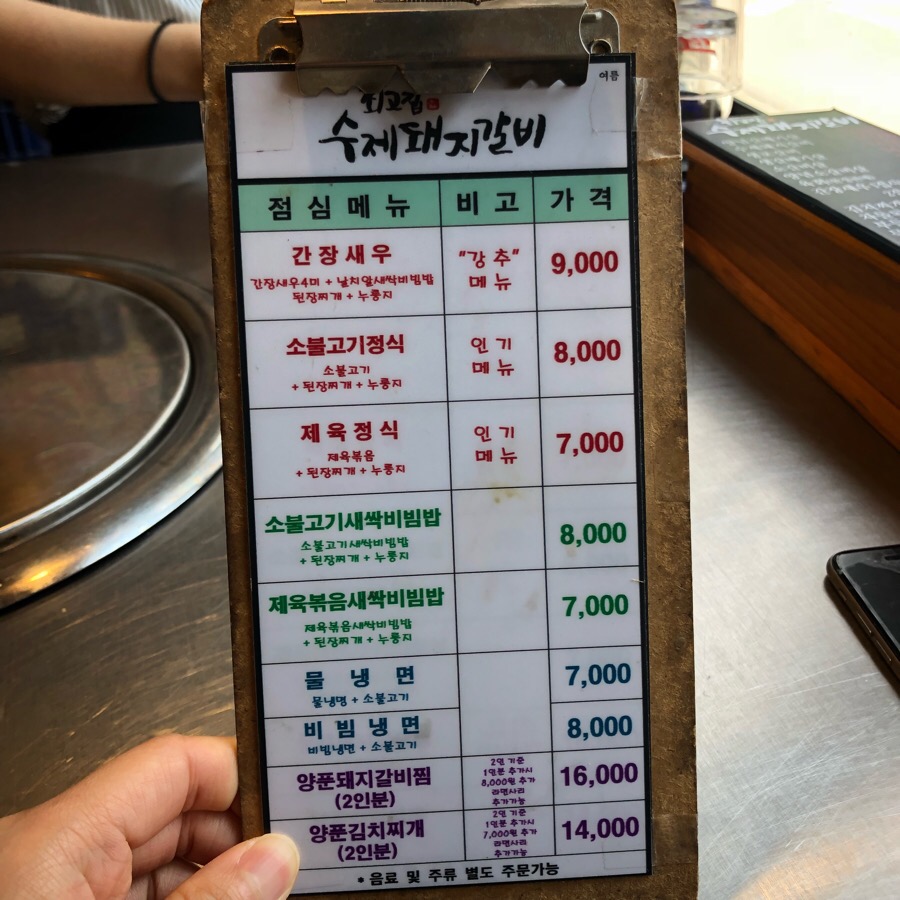 여름
외고집
수제돼지갈비
점심메뉴 비고 가격
간장새우 "강추" 메뉴 9,000
간장새우4미 + 날치알새싹비빔밥
된장찌개 + 누룽지
소불고기정식 인기 메뉴 8,000
소불고기
+ 된장찌개 + 누룽지
제육정식 인기 메뉴 7,000
제육볶음
+ 된장찌개 + 누룽지
소불고기새싹비빔밥 8,000
소불고기새싹비빔밥
+ 된장찌개 + 누룽지
제육볶음새싹비빔밥 7,000
제육볶음새싹비빔밥
+ 된장찌개 + 누룽지
물냉면 7,000
물냉면 + 소불고기
비빔냉면 8,000
비빔냉면 + 소불고기
양푼돼지갈비찜 16,000
(2인분)
2인 기준
1인분 추가시
8,000원 추가
라면사리
추가가능
양푼김치찌개 14,000
(2인분)
2인 기준
1인분 추가시
7,000원 추가
라면사리
추가가능
* 음료 및 주류 별도 주문가능